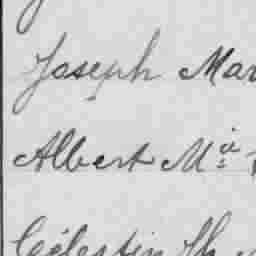 Joseph Mar
Albert Mᵃ
Célestin Th